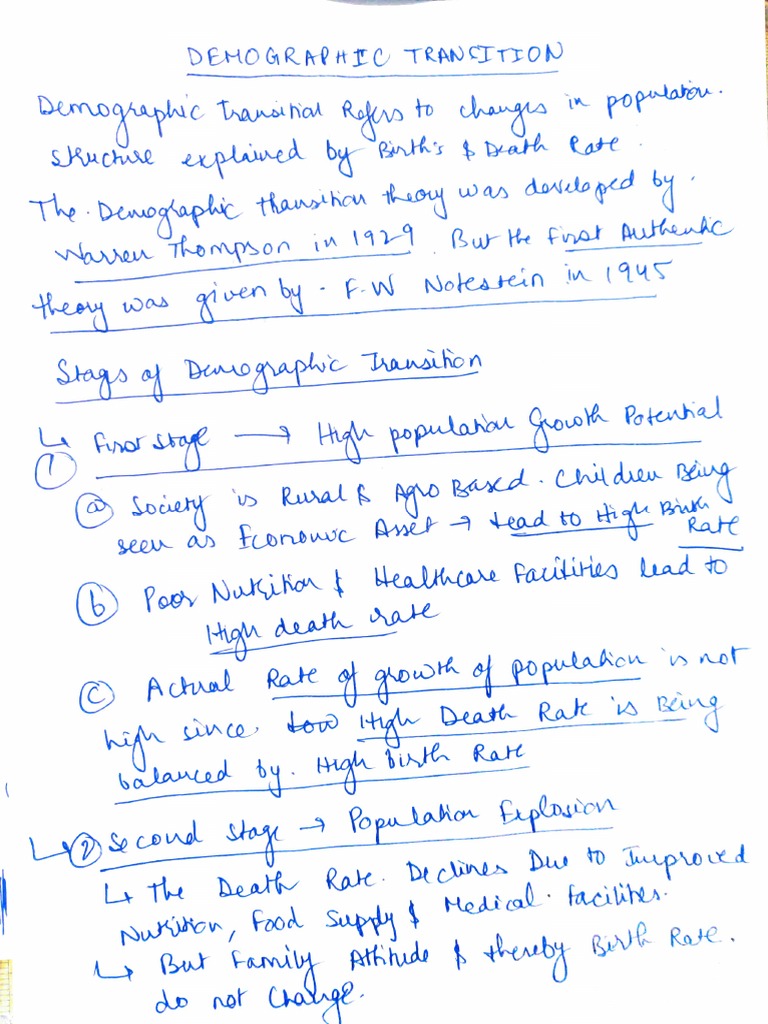 DEMOGRAPHIC TRANSITION
Demographic Transitial Refers to changes in population.
structure explained by Birth's & Death Rate.
The Demographic transition theory was developed by.
Warren Thompson in 1929. But the First Authentic
theory was given by. F.W Notestein in 1945
Stags of Demographic Transition
↳ First Stage → High population Growth Potential
①
ⓐ Society is Rural & Agro Based. Children Being
seen as Economic Asset → Lead to High Birth
Rate
ⓑ Poor Nutrition & Healthcare Facilities lead to
High death rate
ⓒ Actual Rate of growth of population is not
high since, Low High Death Rate is Being
balanced by. High Birth Rate
↳ ② Second Stage → Population Explosion
↳ The Death Rate. Declines Due to Improved
Nutrition, Food Supply & Medical. facilites.
↳ But Family Attitude & thereby Birth Rate.
do not Change.